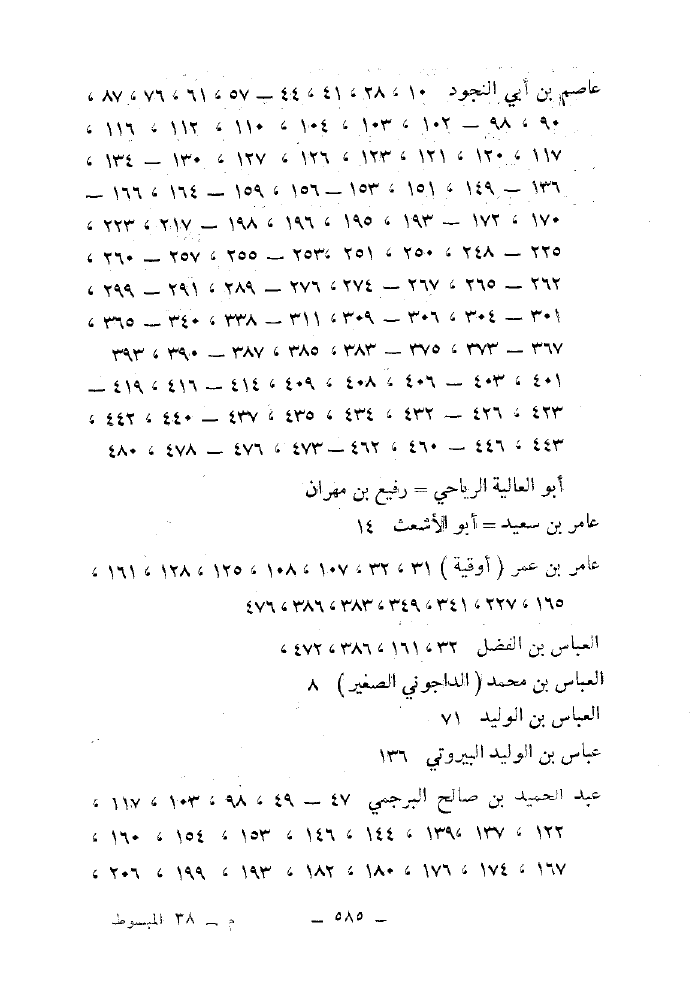 عاصم بن أبي النجود ١٠ ، ٢٨ ، ٤١ ، ٤٤ — ٥٧ ، ٦١ ، ٧٦ ، ٨٧ ،
٩٠ ، ٩٨ — ١٠٢ ، ١٠٣ ، ١٠٤ ، ١١٠ ، ١١٢ ، ١١٦ ،
١١٧ ، ١٢٠ ، ١٢١ ، ١٢٣ ، ١٢٦ ، ١٢٧ ، ١٣٠ — ١٣٤ ،
١٣٦ — ١٤٩ ، ١٥١ ، ١٥٣ — ١٥٦ ، ١٥٩ — ١٦٤ ، ١٦٦ —
١٧٠ ، ١٧٢ — ١٩٣ ، ١٩٥ ، ١٩٦ ، ١٩٨ — ٢١٧ ، ٢٢٣ ،
٢٢٥ — ٢٤٨ ، ٢٥٠ ، ٢٥١ ، ٢٥٣ — ٢٥٥ ، ٢٥٧ — ٢٦٠ ،
٢٦٢ — ٢٦٥ ، ٢٦٧ — ٢٧٤ ، ٢٧٦ — ٢٨٩ ، ٢٩١ — ٢٩٩ ،
٣٠١ — ٣٠٤ ، ٣٠٦ — ٣٠٩ ، ٣١١ — ٣٣٨ ، ٣٤٠ — ٣٦٥ ،
٣٦٧ — ٣٧٣ ، ٣٧٥ — ٣٨٣ ، ٣٨٥ ، ٣٨٧ — ٣٩٠ ، ٣٩٣
٤٠١ ، ٤٠٣ — ٤٠٦ ، ٤٠٨ ، ٤٠٩ ، ٤١٤ — ٤١٦ ، ٤١٩ —
٤٢٣ ، ٤٢٦ — ٤٣٢ ، ٤٣٤ ، ٤٣٥ ، ٤٣٧ — ٤٤٠ ، ٤٤٢ ،
٤٤٣ ، ٤٤٦ — ٤٦٠ ، ٤٦٢ — ٤٧٣ ، ٤٧٦ — ٤٧٨ ، ٤٨٠
أبو العالية الرياحي = رفيع بن مهران
عامر بن سعيد = أبو الأشعث ١٤
عامر بن عمر ( أوقية ) ٣١ ، ٣٢ ، ١٠٧ ، ١٠٨ ، ١٢٥ ، ١٢٨ ، ١٦١ ،
١٦٥ ، ٢٢٧ ، ٣٤١ ، ٣٤٩ ، ٣٨٣ ، ٣٨٦ ، ٤٧٦
العباس بن الفضل ٣٢ ، ١٦١ ، ٣٨٦ ، ٤٧٢ ،
العباس بن محمد ( الداجوني الصغير ) ٨
العباس بن الوليد ٧١
عباس بن الوليد البيروتي ١٣٦
عبد الحميد بن صالح البرجمي ٤٧ — ٤٩ ، ٩٨ ، ١٠٣ ، ١١٧ ،
١٢٢ ، ١٣٧ ، ١٣٩ ، ١٤٤ ، ١٤٦ ، ١٥٣ ، ١٥٤ ، ١٦٠ ،
١٦٧ ، ١٧٤ ، ١٧٦ ، ١٨٠ ، ١٨٢ ، ١٩٣ ، ١٩٩ ، ٢٠٦ ،
— ٥٨٥ — م — ٣٨ المبسوط